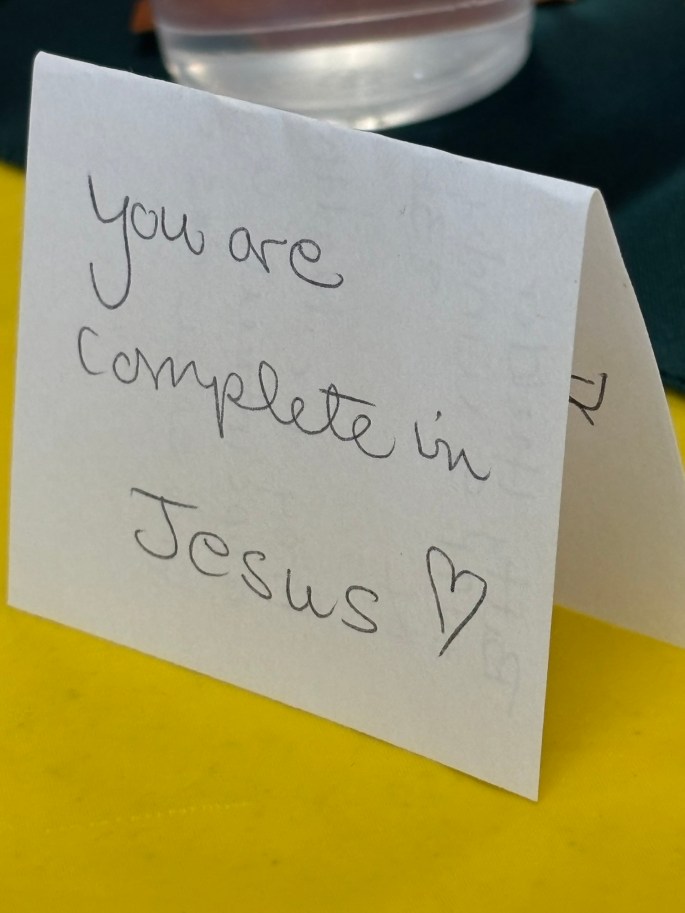 you are
complete in
Jesus ♡